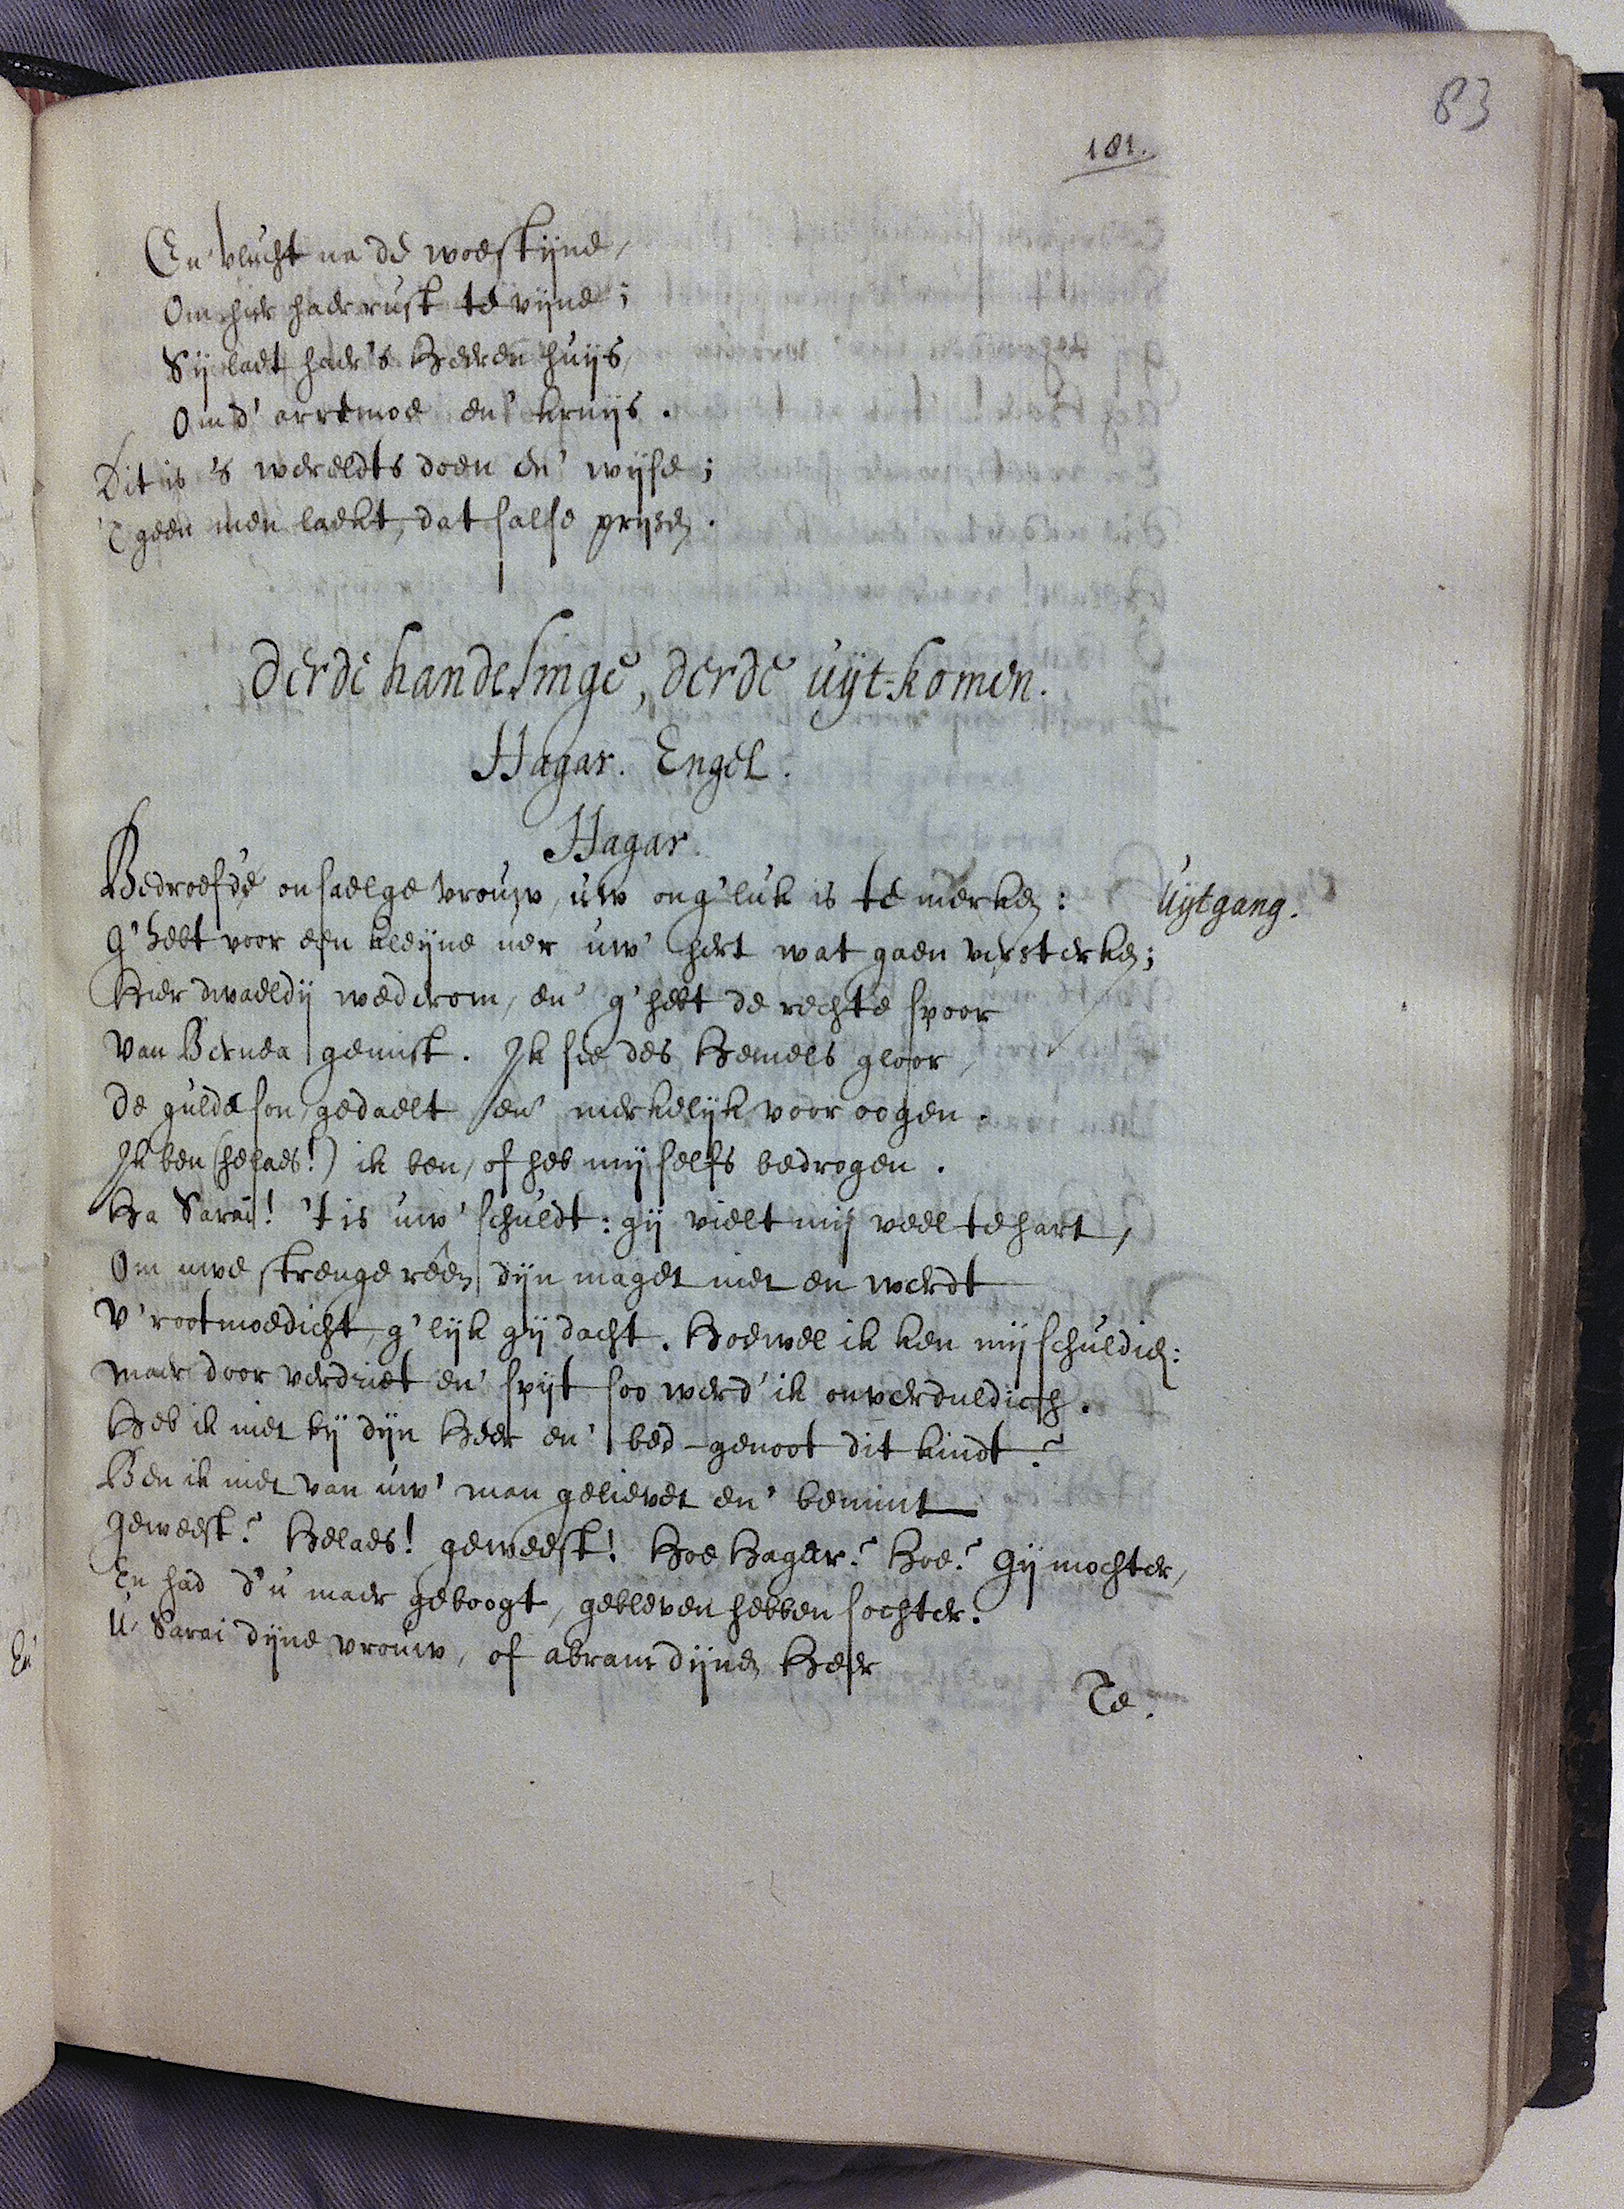 83
181.
En' vlucht na de woestijne,
Om hier haer rust te vijne;
Sij laet haer's Heeren huijs,
Om d' arremoe en' kruijs.
Dit is 's wereldts doen en' wijse;
'T geen men laekt, dat salse prijsen.
Derde handelinge, derde uijt-komen.
Hagar. Engel.
Hagar.
Bedroefde onsaelge vrouw, uw ong'luk is te merken: Uijtgang.
G'hebt voor een kleijne uer uw' hert wat gaen versterken;
Hier dwaeldij wederom, en' g'hebt de rechte spoor
Van Bernea gemist. Ik sie des Hemels gloor,
De gulde son, gedaelt en' merkelijk voor oogen.
Ik ben (helaes!) ik ben, of heb mij selfs bedrogen.
Ha Sarai! 't is uw' schuldt: gij vielt mij veel te hart,
Om uwe strenge rêen dijn maget niet en werdt
V'rootmoedicht, g'lijk gij dacht. Hoewel ik ken mij schuldich:
Maer door verdriet en' spijt soo werd' ik onverduldich.
Heb ik niet bij dijn Heer en' bed-genoot dit kindt?
Ben ik niet van uw' man gelievet en' bemint
Geweest? Helaes! geweest! Hoe Hagar? Hoe? Gij mochter,
En had d'u maer geboogt, gebleven hebben sochter.
U Sarai dijne vrouw, of abram dijnen Heer
Te.
En'